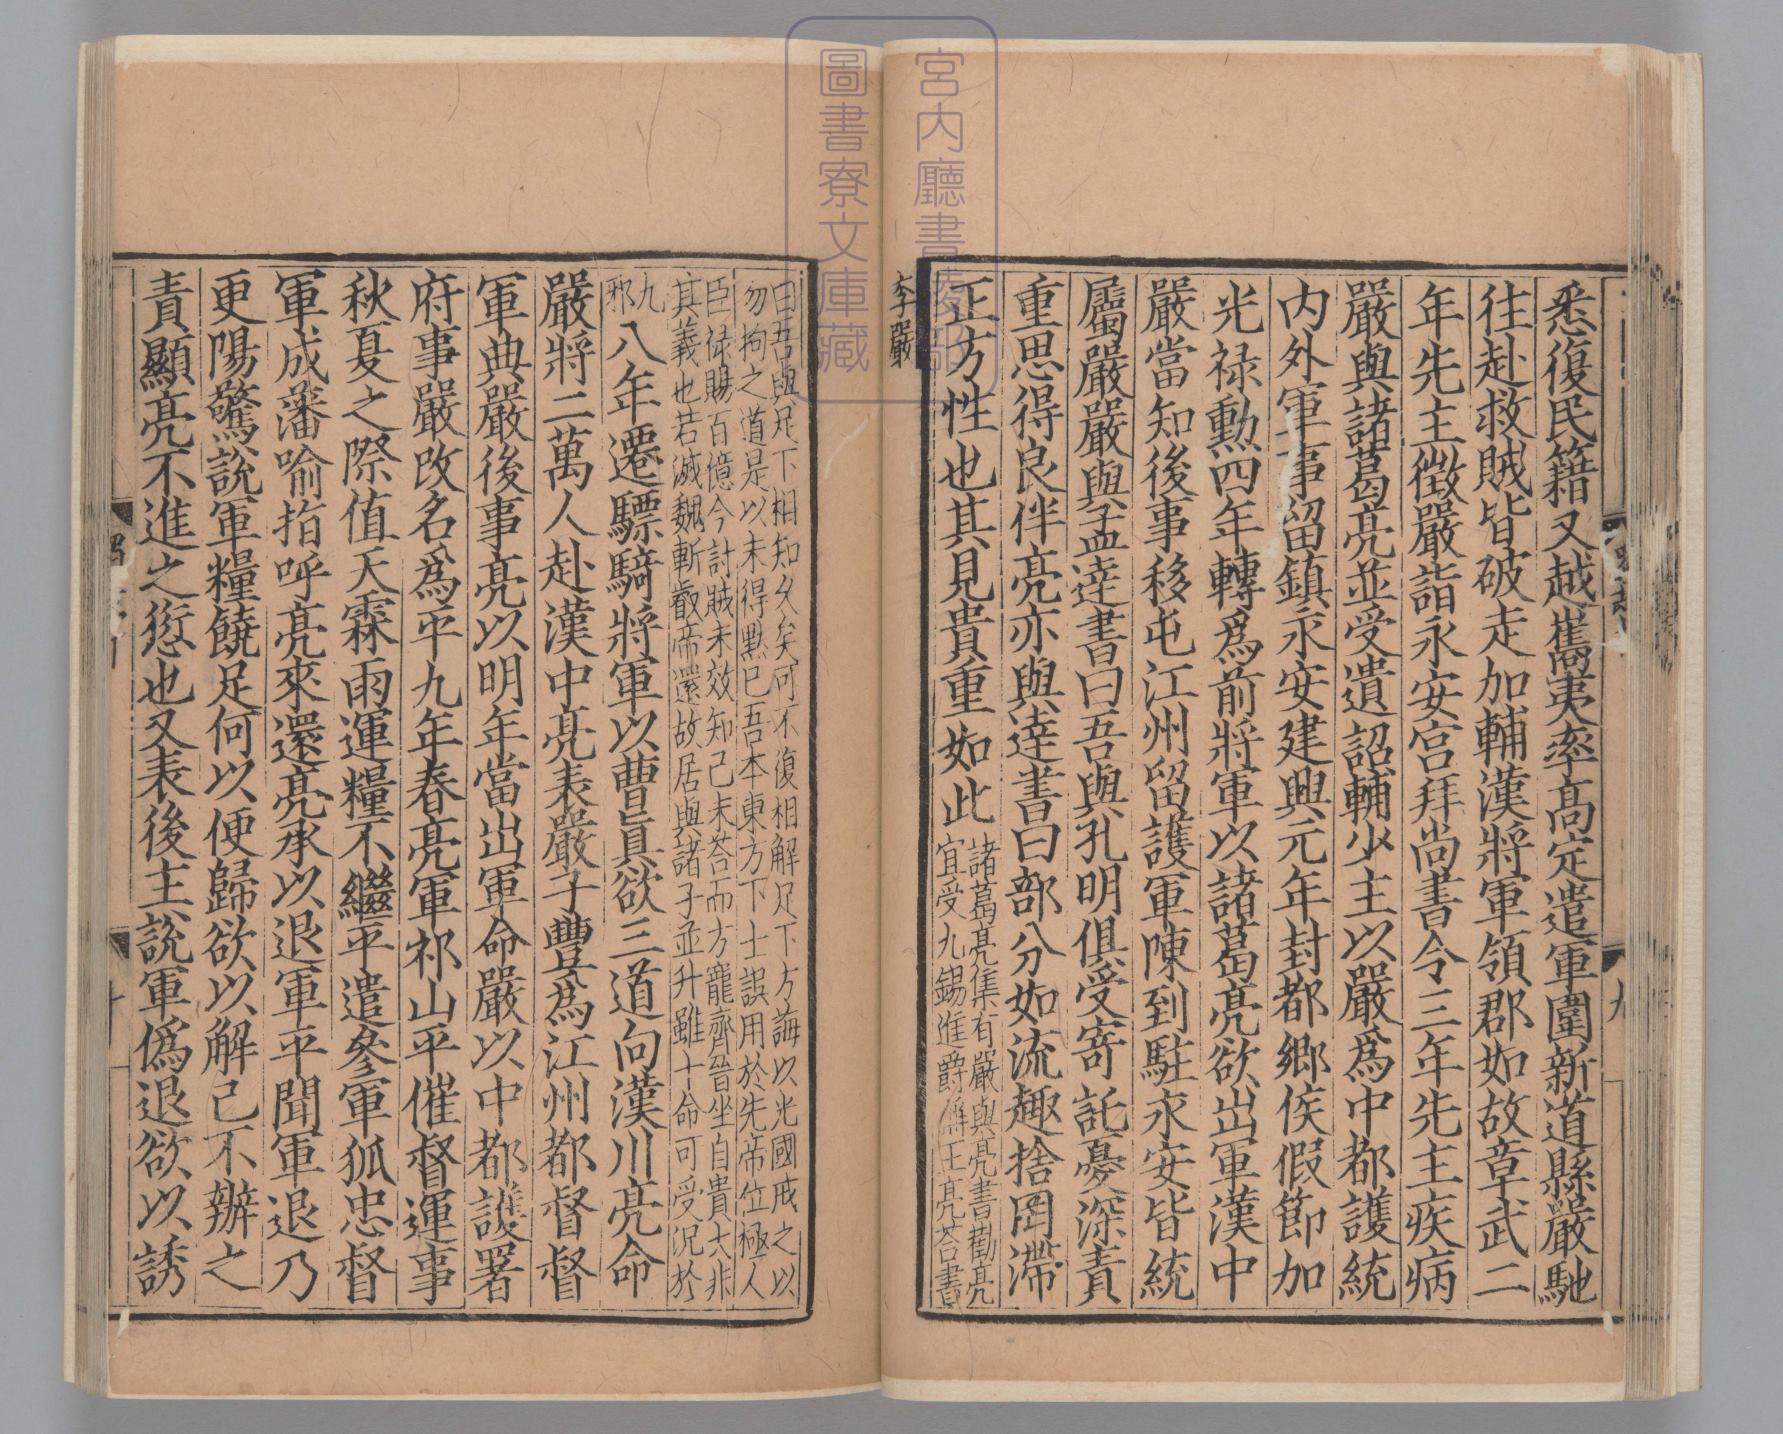 悉復民籍又越嶲夷率高定遣軍圍新道縣嚴馳
往赴救賊皆破走加輔漢將軍領郡如故章武二
年先主徵嚴詣永安宫拜尚書令三年先主疾病
嚴與諸葛亮並受遺詔輔少主以嚴爲中都護統
内外軍事留鎮永安建興元年封都鄉侯假節加
光禄勲四年轉爲前將軍以諸葛亮欲出軍漢中
嚴當知後事移屯江州留護軍陳到駐永安皆統
屬嚴嚴與孟達書曰吾與孔明俱受寄託憂深責
重思得良伴亮亦與達書曰部分如流趣捨罔滯
正方性也其見貴重如此
諸葛亮集有嚴與亮書勸亮
宜受九錫進爵稱王亮荅書
李嚴
曰吾與足下相知久矣可不復相解足下方誨以光國戒之以
勿拘之道是以未得黙已吾本東方下士誤用於先帝位極人
臣禄賜百億今討賊未效知己未荅而方寵齊晉坐自貴大非
其義也若滅魏斬叡帝還故居與諸子並升雖十命可受況於
九
邪
八年遷驃騎將軍以曹眞欲三道向漢川亮命
嚴將二萬人赴漢中亮表嚴子豐爲江州都督督
軍典嚴後事亮以明年當出軍命嚴以中都護署
府事嚴改名爲平九年春亮軍祁山平催督運事
秋夏之際值天霖雨運糧不繼平遣參軍狐忠督
軍成藩喻指呼亮來還亮承以退軍平聞軍退乃
更陽驚說軍糧饒足何以便歸欲以解己不辦之
責顯亮不進之愆也又表後主說軍僞退欲以誘
宮内廳書陵部
圖書寮文庫藏
九